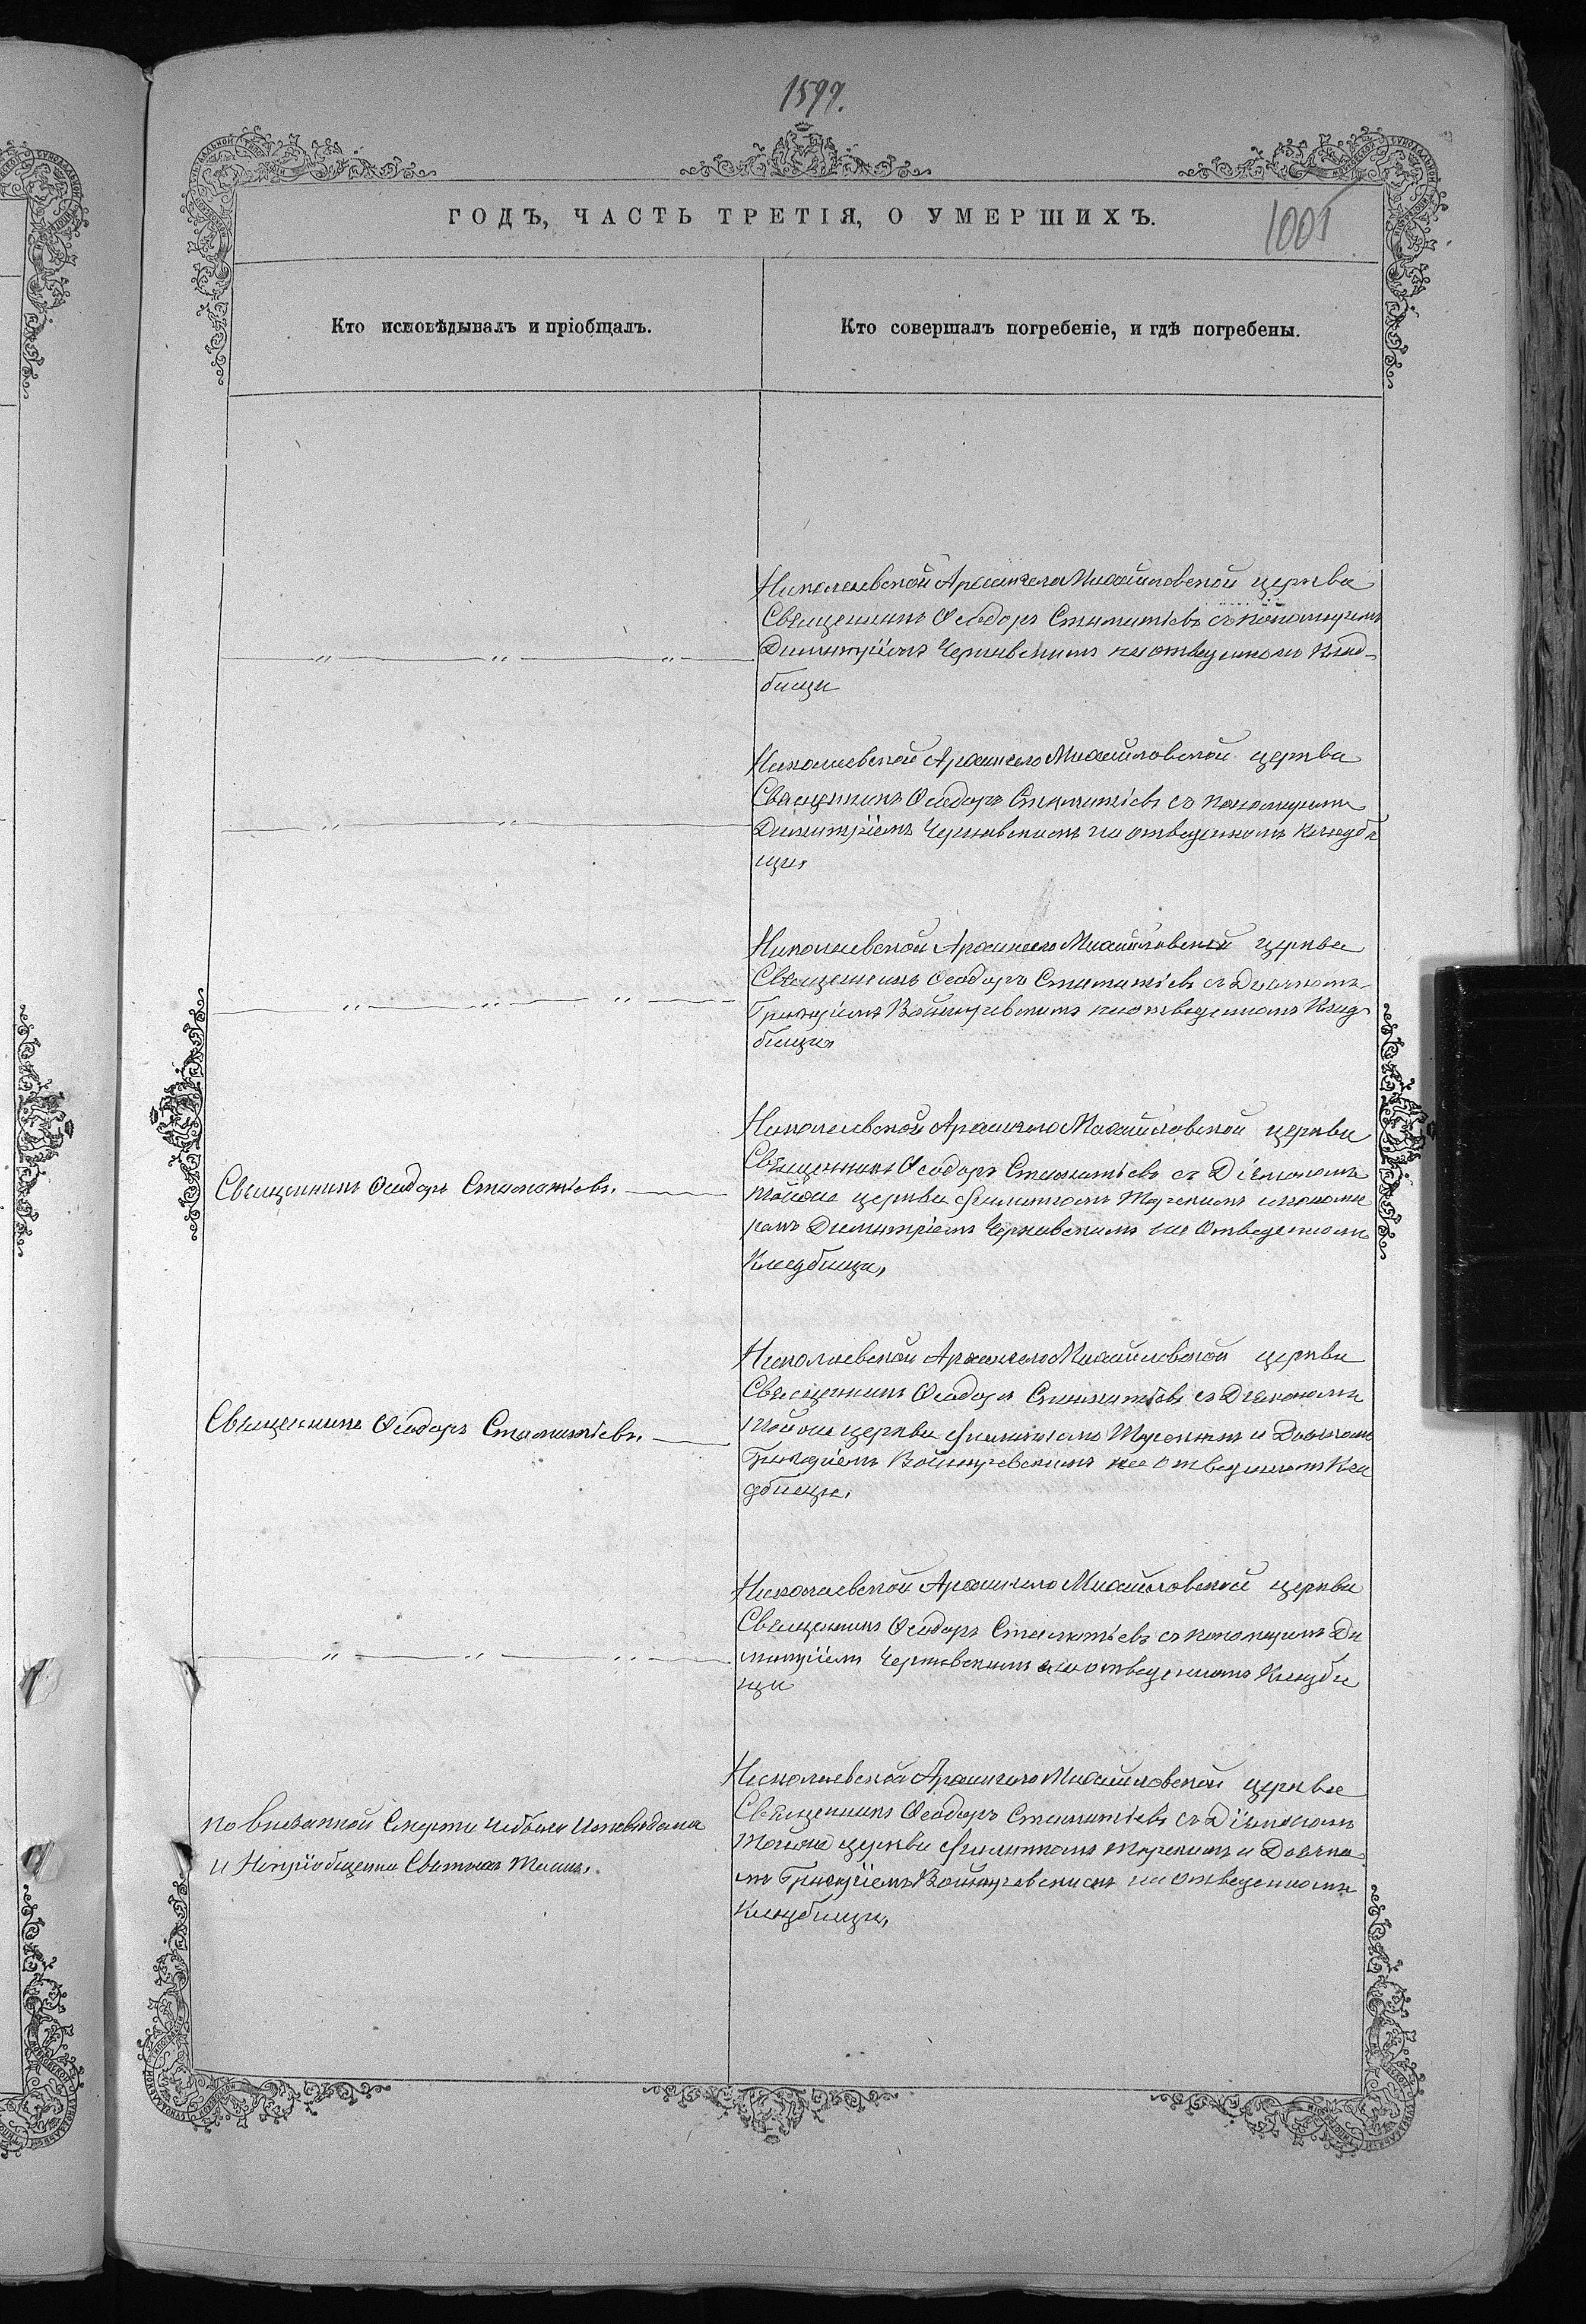 1599.
ГОДЪ, ЧАСТЬ ТРЕТІЯ, О УМЕРШИХЪ.
1001
Кто исповѣдывалъ и пріобщалъ.
Кто совершалъ погребеніе, и гдѣ погребены.
Николаевской Архангело Михайловской церкви
Священникъ Феодоръ Стаматіевъ съ пономаремъ
Димитріемъ Чернявскимъ на отведенномъ клад-
бищи
Николаевской Архангело Михайловской церкви
Священникъ Феодоръ Стаматіевъ съ пономаремъ
Димитріемъ Чернявскимъ на отведенномъ кладби
щи,
Николаевской Архангело Михайловской церкви
Священникъ Феодоръ Стаматіевъ съ Дьячкомъ
Григоріемъ на отведенномъ Клад-
бищи,
Священникъ Феодоръ Стаматіевъ.
Николаевской Архангело Михайловской церкви
Священникъ Феодоръ Стаматіевъ съ Діякономъ
тойже церкви и понома
ремъ Димитріемъ Чернявскимъ на Отведенномъ
Кладбищи,
Священникъ Феодоръ Стаматіевъ.
Николаевской Архангело Михайловской церкви
Священникъ Феодоръ Стаматіевъ съ Діякономъ
тойже церкви и Дьячкомъ
Григоріемъ на Отведенномъ Кла
дбищи,
Николаевской Архангело Михайловской церкви
Священникъ Феодоръ Стаматіевъ съ пономаремъ Ди
митріемъ Чернявскимъ на отведенномъ Кладби
щи
по внезапной Смерти небыла Исповѣдана
и Непріобщенна Святыхъ Таинъ.
Николаевской Архангело Михайловской церкви
Священникъ Феодоръ Стаматіевъ съ Діякономъ
тойже церкви и Дьячко
мъ Григоріемъ на отведенномъ
Кладбищи,